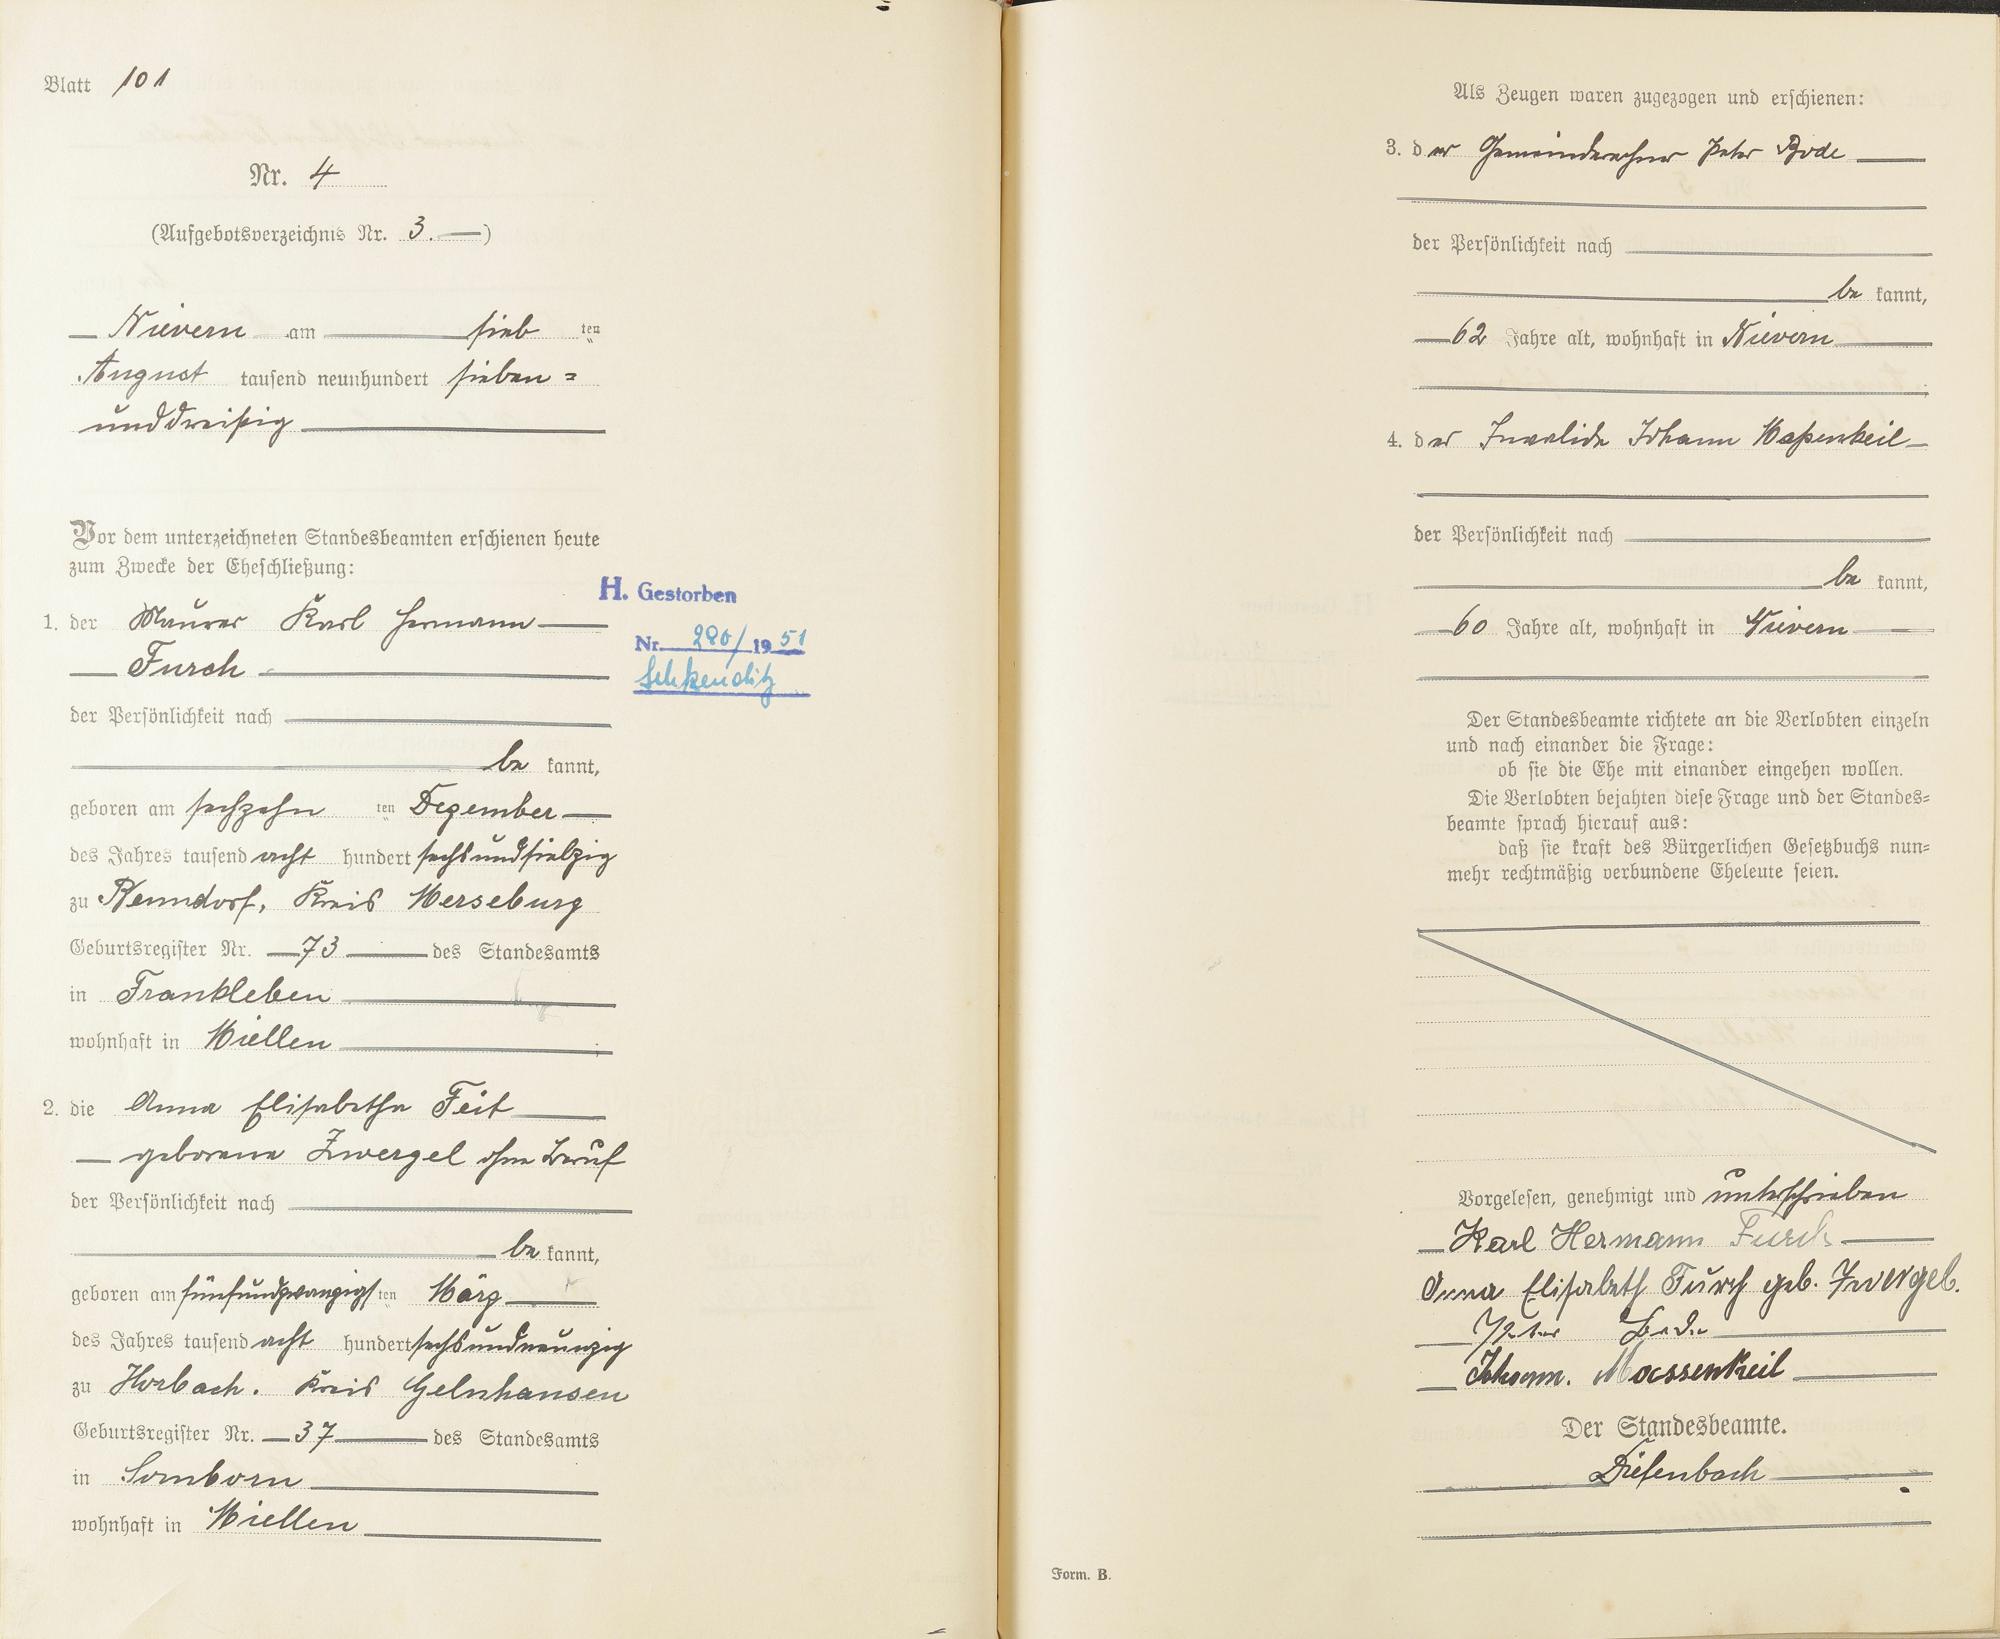 Blatt 101
Nr. 4
(Aufgebotsverzeichnis Nr. 3.)
Nievern am sieb ten
August tausend neunhundert sieben=
unddreißig
Vor dem unterzeichneten Standesbeamten erschienen heute
zum Zwecke der Eheschließung:
1. der Maurer Karl Hermann
Furch
H. Gestorben
Nr. 280/1951
Schkeuditz
der Persönlichkeit nach
be kannt,
geboren am sechzehn ten Dezember
des Jahres tausend acht hundert sechsundsiebzig
zu Kreis Merseburg
Geburtsregister Nr. 73 des Standesamts
in Frankleben
wohnhaft in Miellen
2. die Anna Elisabetha Feit
geborene Zwergel ohne Beruf
der Persönlichkeit nach
be kannt,
geboren am fünfundzwanzigsten März
des Jahres tausend acht hundert sechsundneunzig
zu Horbach. Kreis Gelnhausen
Geburtsregister Nr. 37 des Standesamts
in Somborn
wohnhaft in Miellen
Als Zeugen waren zugezogen und erschienen:
3. der Gemeinderechner Peter Bode
der Persönlichkeit nach
be kannt,
62 Jahre alt, wohnhaft in Nievern
4. der Invalide Johann Maßenkeil
der Persönlichkeit nach
be kannt,
60 Jahre alt, wohnhaft in Nievern
Der Standesbeamte richtete an die Verlobten einzeln
und nach einander die Frage:
ob sie die Ehe mit einander eingehen wollen.
Die Verlobten bejahten diese Frage und der Standes=
beamte sprach hierauf aus:
daß sie kraft des Bürgerlichen Gesetzbuchs nun=
mehr rechtmäßig verbundene Eheleute seien.
Vorgelesen, genehmigt und unterschrieben
Karl Hermann Furch
Anna Elisabeth Furch geb. Zwergel.
Peter Bode
Johann. Massenkeil
Der Standesbeamte.
Diefenbach
Form. B.